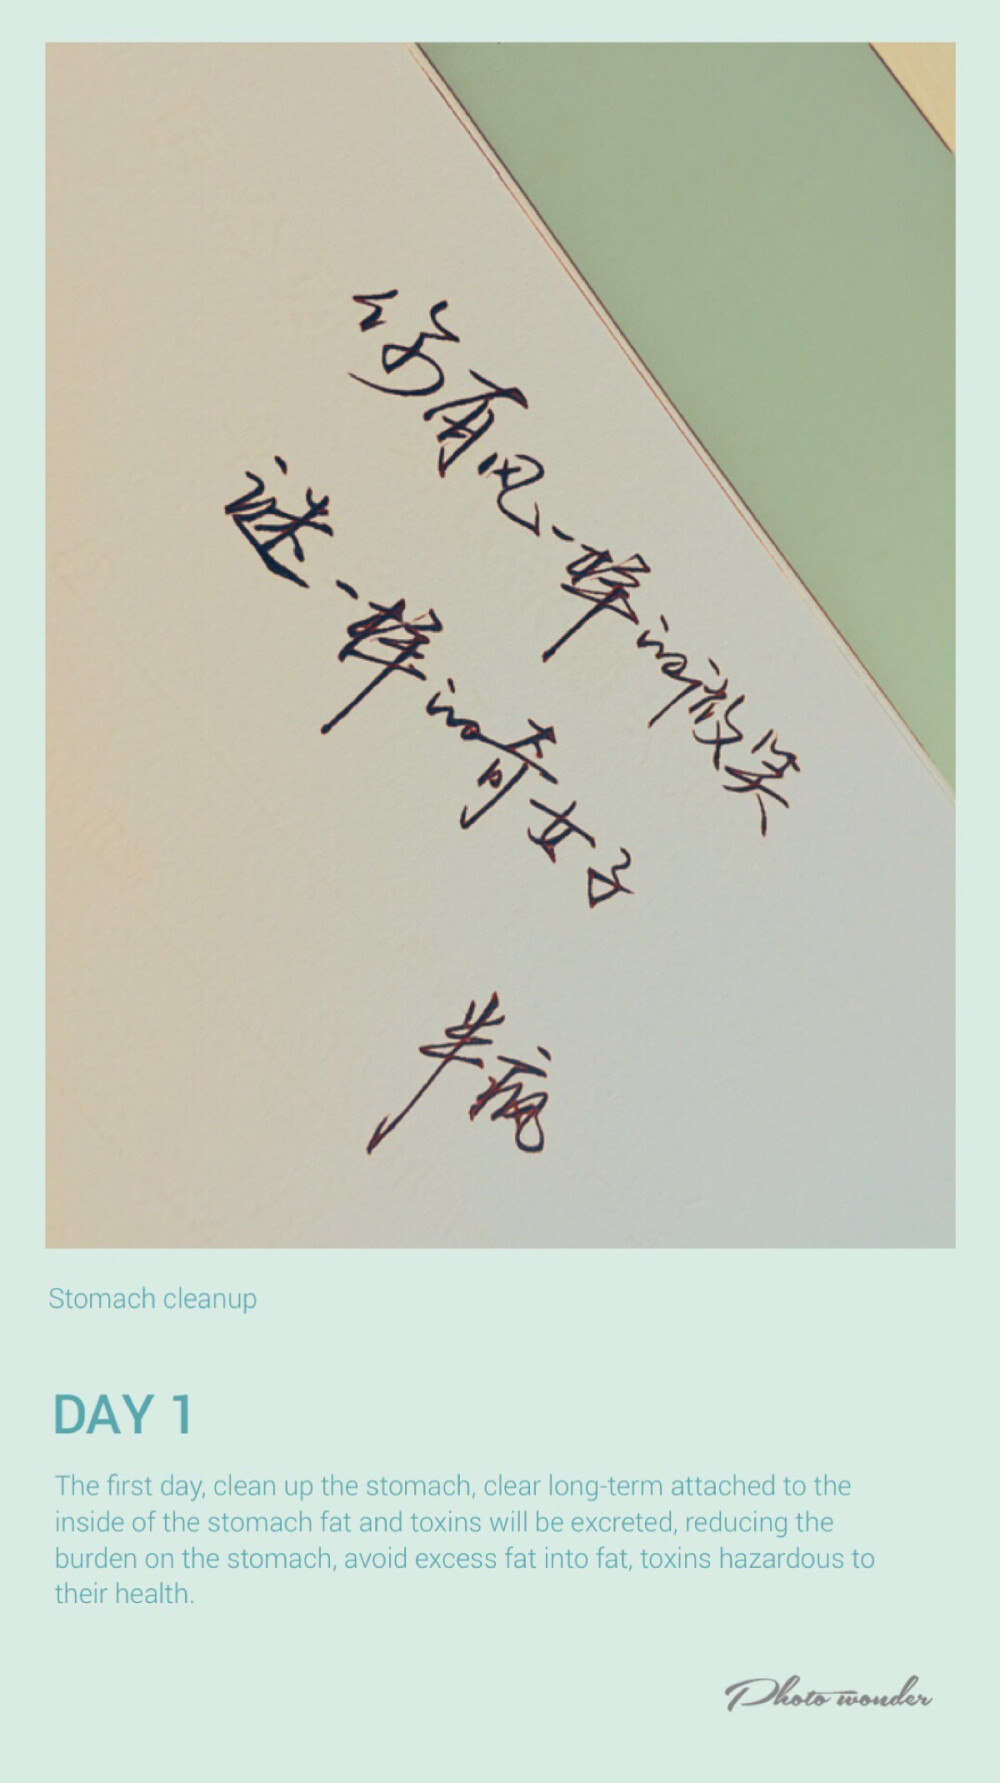 你有风一样的微笑
谜一样的奇女子
半疯
Stomach cleanup
DAY 1
The first day, clean up the stomach, clear long-term attached to the
inside of the stomach fat and toxins will be excreted, reducing the
burden on the stomach, avoid excess fat into fat, toxins hazardous to
their health.
Photo wonder